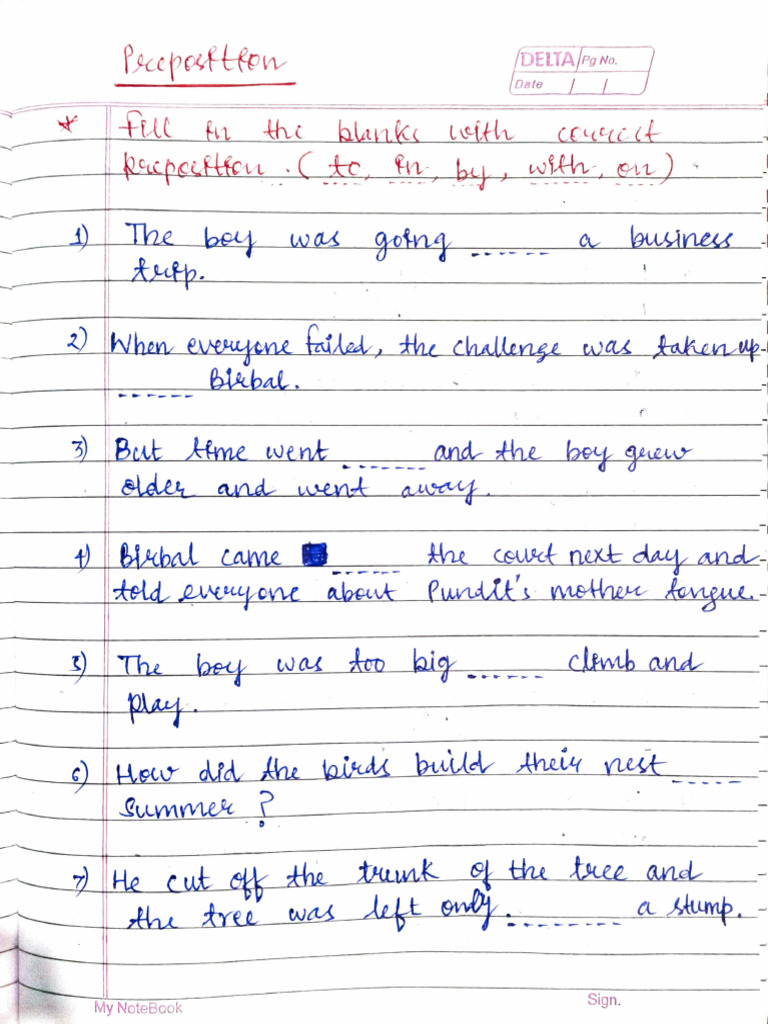 Preposition
DELTA Pg No.
Date / /
* Fill in the blanks with correct
preposition. (to, in, by, with, on)
1) The boy was going ------ a business
trip.
2) When everyone failed, the challenge was taken up
------ Birbal.
3) But time went ------ and the boy grew
older and went away.
4) Birbal came ------ the court next day and
told everyone about Pundit's mother tongue.
5) The boy was too big ------ climb and
play.
6) How did the birds build their nest ------
summer?
7) He cut off the trunk of the tree and
the tree was left only. -------- a stump.
My NoteBook Sign.